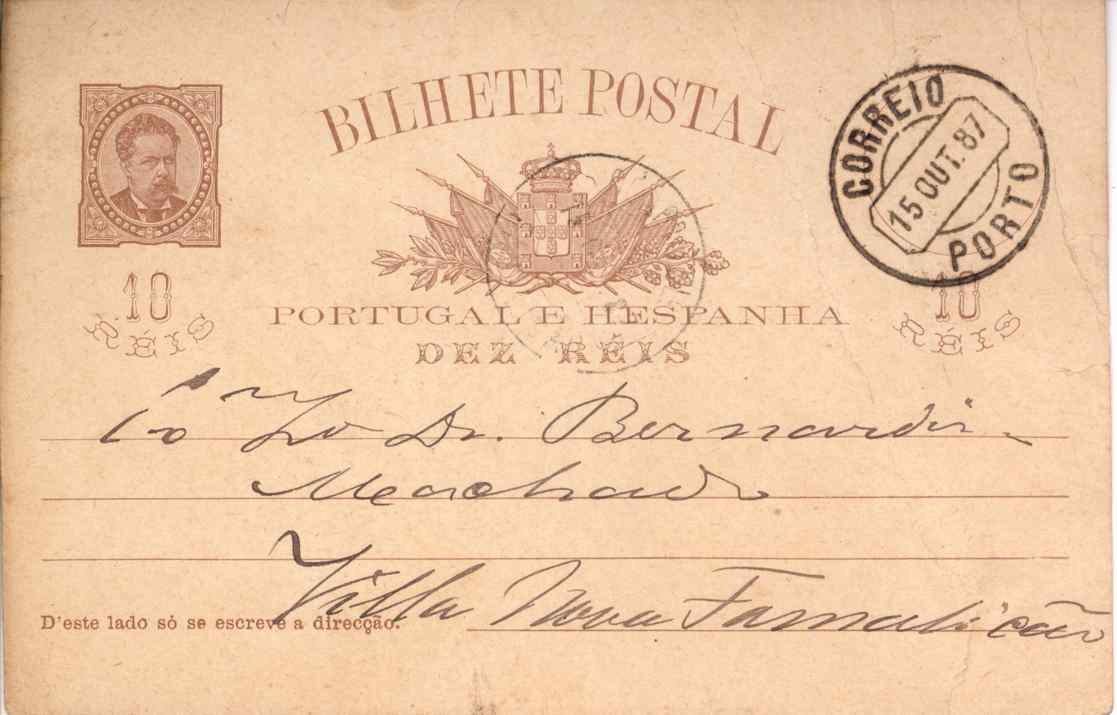 BILHETE POSTAL
CORREIO
15 OUT. 87
PORTO
10
RÉIS
PORTUGAL E HESPANHA
10
RÉIS
DEZ RÉIS
Dr. Bernardi-
Machado
Villa Nova Famalicão
D'este lado só se escreve a direcção.